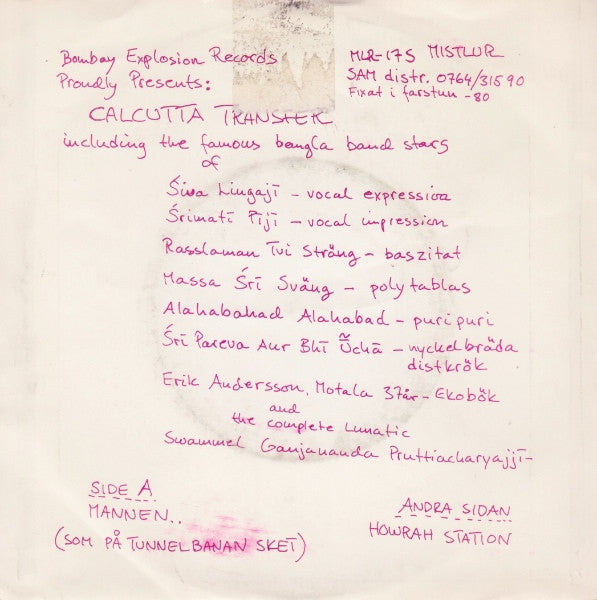 Bombay Explosion Records
Proudly Presents:
MLR-17S MISTLUR
SAM distr. 0764/31590
Fixat i farstun -80
CALCUTTA TRANSFER
including the famous bangla band stars
of
Śiva Lingajī - vocal expression
Śrīmatī Pījī - vocal impression
Rasslaman Tvi Sträng - baszitat
Massa Śrī Sväng - polytablas
Alahabahad Alahabad - puripuri
Śrī Pareva Aur Bhī Ũchā - nyckelbräda
distkrök
Erik Andersson, Motala 37år - Ekobök
and
the complete Lunatic
Swammel Ganjananda Pruttiacharyajjī-
SIDE A
MANNEN..
(SOM PÅ TUNNELBANAN SKET)
ANDRA SIDAN
HOWRAH STATION